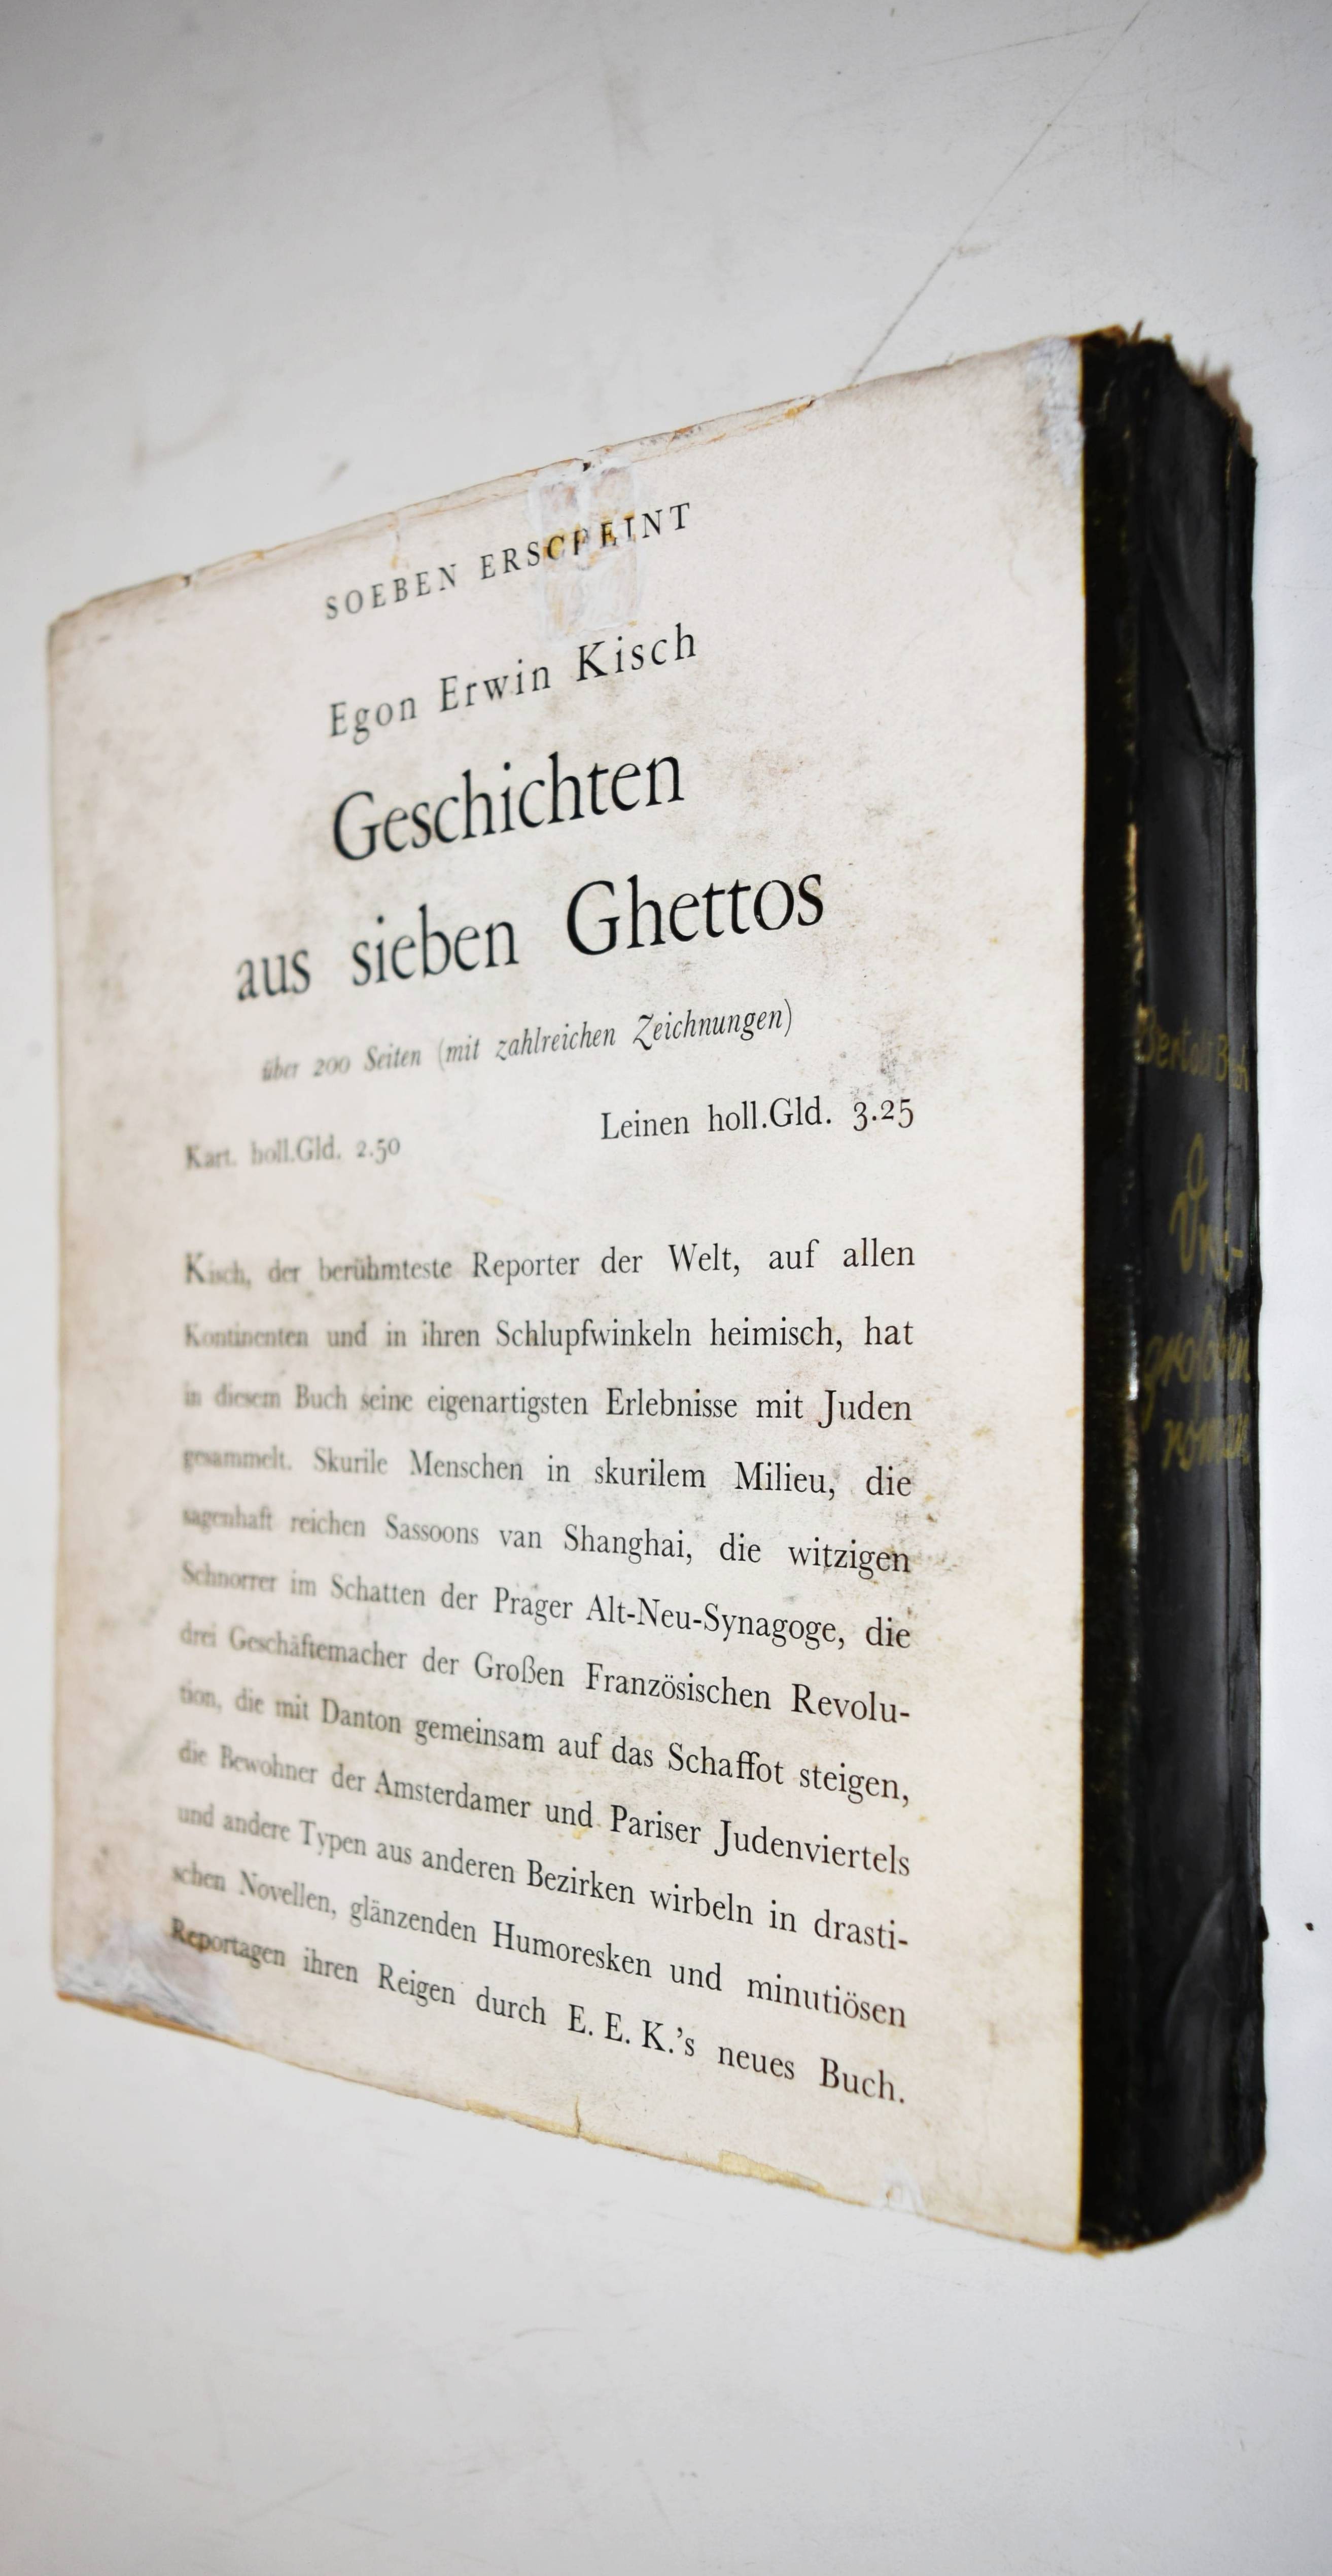 SOEBEN ERSCHEINT
Egon Erwin Kisch
Geschichten
aus sieben Ghettos
über 200 Seiten (mit zahlreichen Zeichnungen)
Kart. holl.Gld. 2.50 Leinen holl.Gld. 3.25
Kisch, der berühmteste Reporter der Welt, auf allen
Kontinenten und in ihren Schlupfwinkeln heimisch, hat
in diesem Buch seine eigenartigsten Erlebnisse mit Juden
gesammelt. Skurile Menschen in skurilem Milieu, die
sagenhaft reichen Sassoons van Shanghai, die witzigen
Schnorrer im Schatten der Prager Alt-Neu-Synagoge, die
drei Geschäftemacher der Großen Französischen Revolu-
tion, die mit Danton gemeinsam auf das Schaffot steigen,
die Bewohner der Amsterdamer und Pariser Judenviertels
und andere Typen aus anderen Bezirken wirbeln in drasti-
schen Novellen, glänzenden Humoresken und minutiösen
Reportagen ihren Reigen durch E. E. K.'s neues Buch.
Drei-
groschen
roman